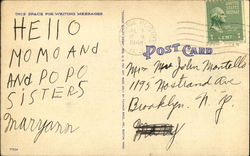 THIS SPACE FOR WRITING MESSAGES
HEllO
MOMO AND
AND POPO
SISTERS
Maryann
POST CARD
Mr + Mrs John Montello
1193 Nostrand Ave
Brooklyn. N. Y.